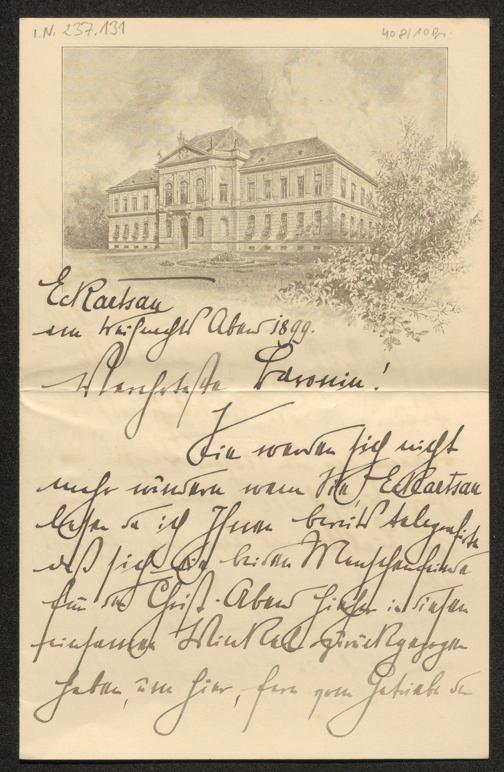 I.N. 237.131
Eckartsau
am Weihnachts Abend 1899.
Baronin!
Sie werden sich nicht
mehr wundern wenn Sie Eckartsau
lesen da ich Ihnen bereits telegrafirte
daß sich die beiden Menschenfeinde
für den Christ-Abend hieher in diesen
einsamen Winkel zurückgezogen
haben, um hier, fern vom Getriebe der